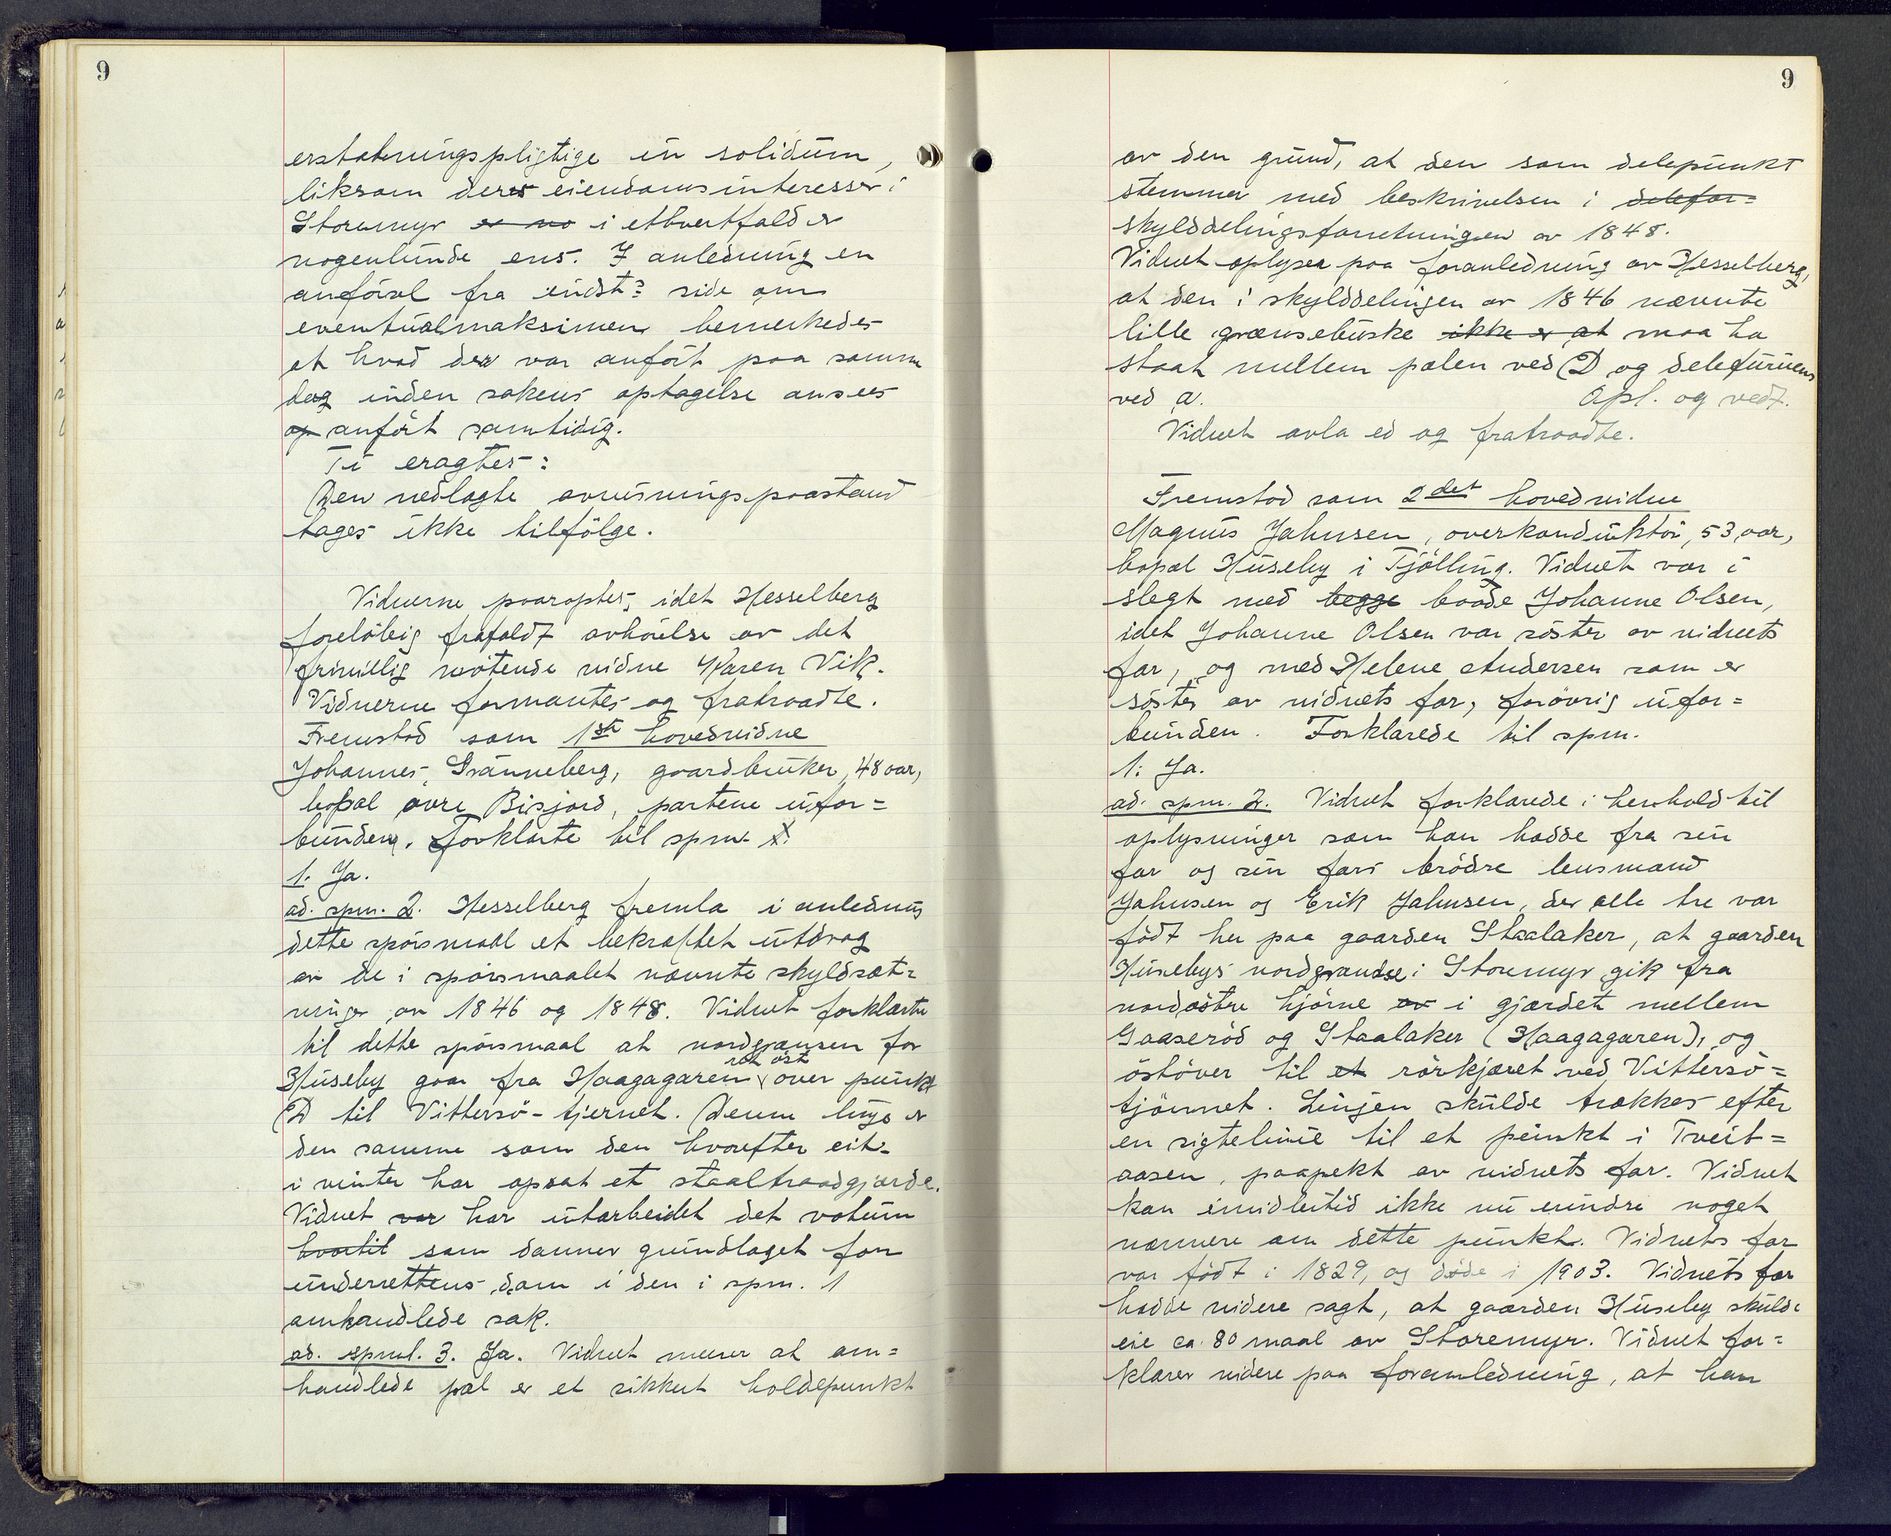 9
erstatningspligtige in solidum,
liksom deres eiendomsinteresser i
Storemyr er no i ethvertfald er
nogenlunde ens. I anledning en
anförsel fra indst? side om
eventualmaksimen bemerkedes
at hvad der var anfört paa samme
dag inden sakens optagelse ansees
op anfört samtidig.
Ti eragtes:
Den nedlagte avvisningspaastand
tages ikke tilfölge.
Vidnerne paaroptes, idet Hesselberg
forelöbig frafaldt avhörelse av det
frivillig mötende vidne Karen Vik.
Vidnerne formantes og fratraadte.
Fremstod som 1ste hovedvidne
Johannes Grånneberg, gaardbruker, 48 aar,
bopæl övre Bisjord, partene ufor=
bunden. Forklarte til spm. 1.
1. Ja.
ad. spm. 2. Hesselberg fremla i anledning
dette spörsmaal et bekræftet utdrag
av de i spörsmaalet nævnte skyldsæt=
ninger av 1846 og 1848. Vidnet forklarte
til dette spörsmaal at nordgrænsen for
ret öst
Huseby gaar fra Haagagaren over punkt
D til Vittersö-tjernet. Denne linje er
den samme som den hvorefter eit.
i vinter har opsat et staaltraadgjærde.
Vidnet var har utarbeidet det votum
hvortil som danner grundlaget for
underrettens dom i den i spm. 1
omhandlede sak.
ad. spml. 3. Ja. Vidnet mener at om=
handlede pæl er et sikkert holdepunkt
9
av den grund, at den som delepunkt
stemmer med beskrivelsen i delefor=
skylddelingsforretningen av 1848.
Vidnet oplyser paa foranledning av Hesselberg,
at den i skylddelingen av 1846 nævnte
lille grænsebuske ikke er at maa ha
staat mellem pælen ved D og delefuruens
ved a. Opl. og vedt.
Vidnet avla ed og fratraadte.
Fremstod som 2det hovedvidne
Magnus Jahnsen, overkonduktör, 53 aar,
bopæl Huseby i Tjölling. Vidnet var i
slegt med begge baade Johanne Olsen,
idet Johanne Olsen var söster av vidnets
far, og med Helene Andersen som er
söster av vidnets far, forövrig ufor=
bunden. Forklarede til spm.
1. Ja.
ad. spm. 2. Vidnet forklarede i henhold til
oplysninger som han hadde fra sin
far og sin fars brödre lensmand
Jahnsen og Erik Jahnsen, der alle tre var
födt her paa gaarden Staalaker, at gaarden
Husebys nordgrændse i Storemyr gik fra
nordöstre hjörne av i gjærdet mellem
Gaaseröd og Staalaker (Haagagaren), og
östover til et rörkjæret ved Vittersö=
tjönnet. Linjen skulde trækkes efter
en sigtelinie til et punkt i Tveit=
aasen, paapekt av vidnets far. Vidnet
kan imidlertid ikke nu erindre noget
nærmere om dette punkt. Vidnets far
var födt i 1829, og döde i 1903. Vidnets far
hadde videre sagt, at gaarden Huseby skulde
eie ca. 80 maal av Storemyr. Vidnet for=
klarer videre paa foranledning, at han